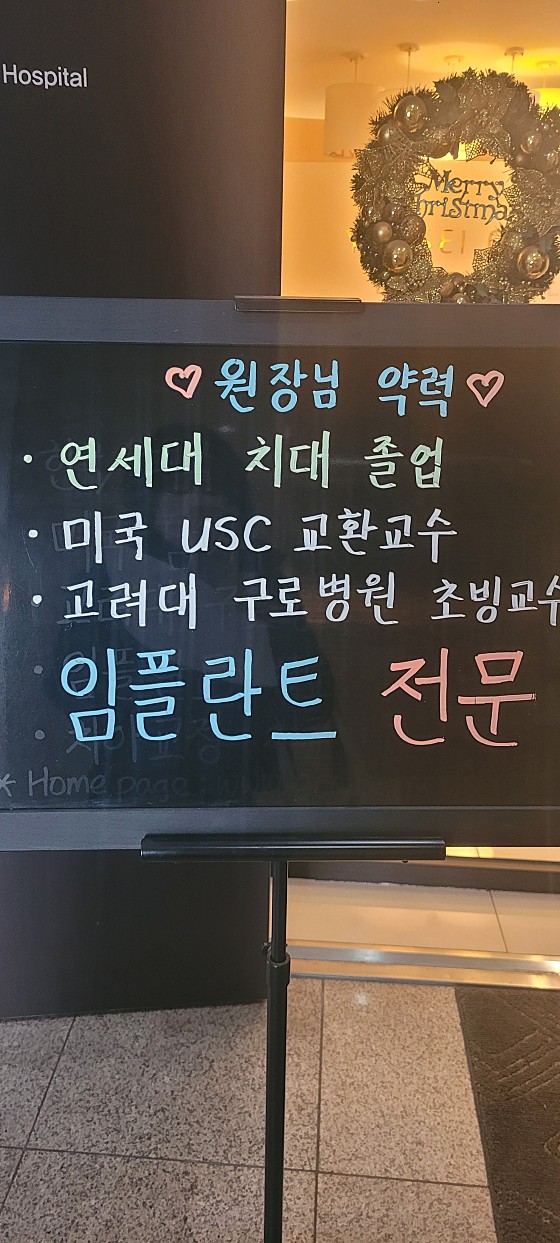 Hospital
Merry
♡ 원장님 약력 ♡
· 연세대 치대 졸업
· 미국 USC 교환교수
· 고려대 구로병원 초빙교수
임플란트 전문
* Home page :